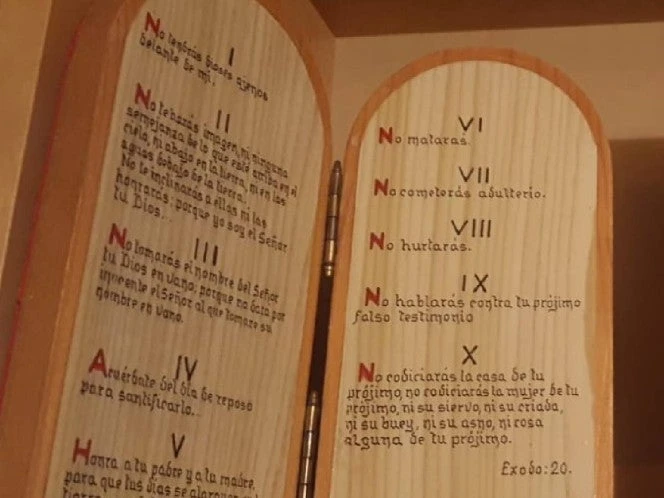 I
No tendrás dioses ajenos
delante de mí.
II
No te harás imagen, ni ninguna
semejanza de lo que esté arriba en el
cielo, ni abajo en la tierra, ni en las
aguas debajo de la tierra.
No te inclinarás a ellas ni las
honrarás; porque yo soy el Señor
tu Dios...
III
No tomarás el nombre del Señor
tu Dios en vano, porque no dará por
inocente el Señor al que tomare su
nombre en vano.
IV
Acuérdate del día de reposo
para santificarlo..
V
Honra a tu padre y a tu madre,
para que tus días se alarguen
VI
No matarás.
VII
No cometerás adulterio.
VIII
No hurtarás.
IX
No hablarás contra tu prójimo
falso testimonio
X
No codiciarás la casa de tu
prójimo, no codiciarás la mujer de tu
prójimo, ni su siervo, ni su criada,
ni su buey, ni su asno, ni cosa
alguna de tu prójimo.
Exodo: 20.